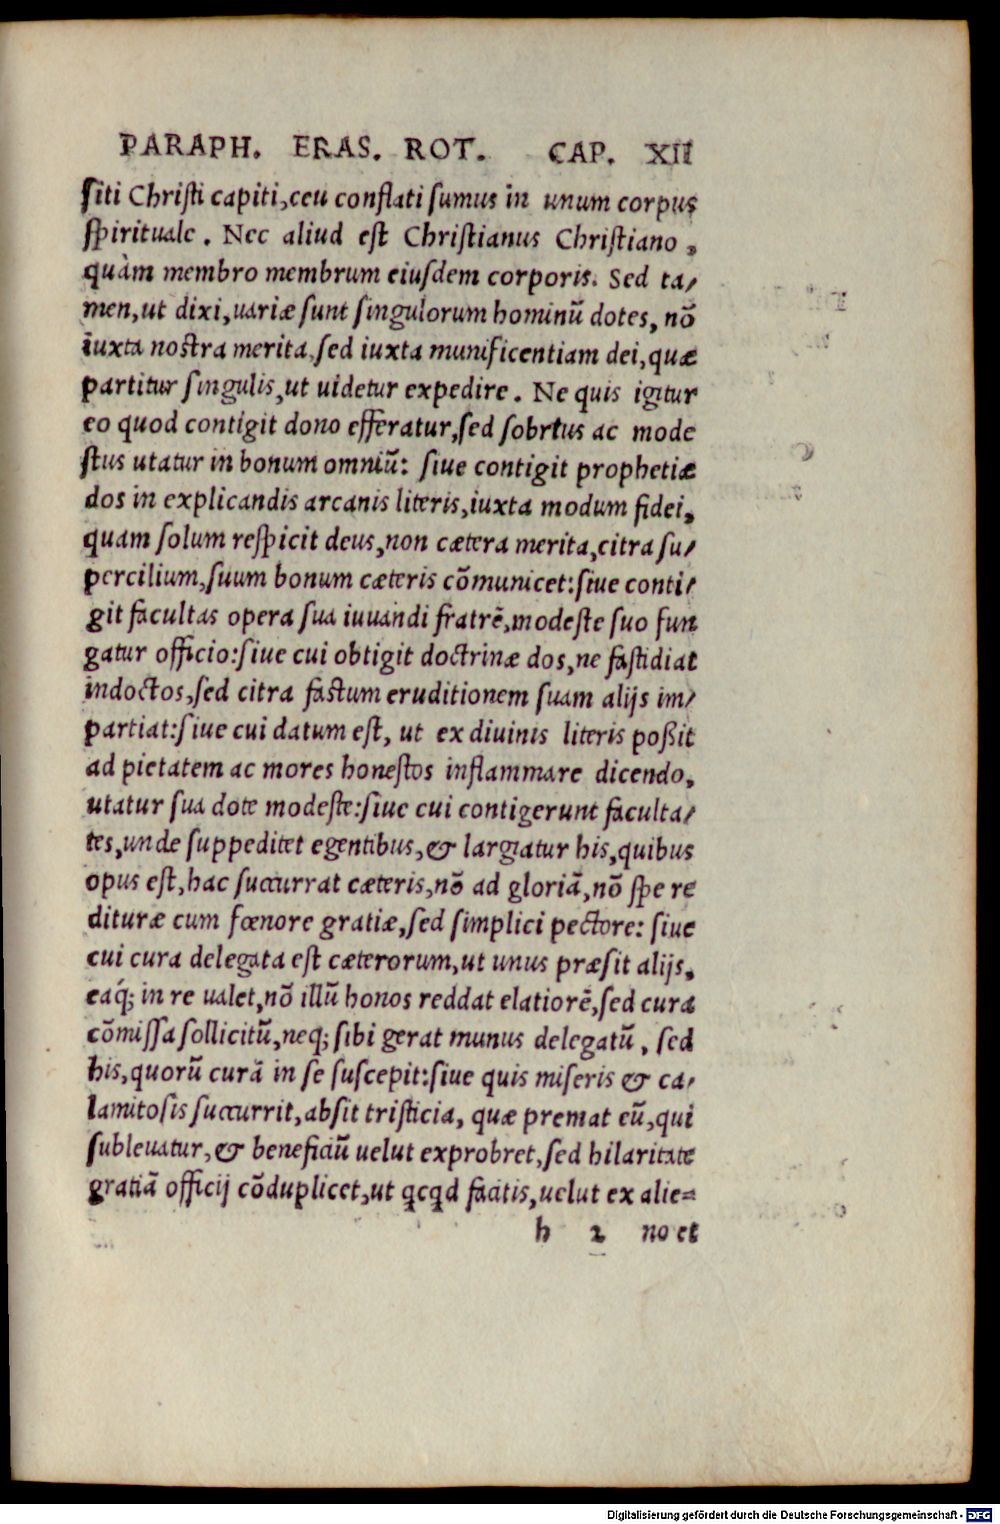 PARAPH. ERAS. ROT. CAP. XII
siti Christi capiti,ceu conflati sumus in unum corpus
spirituale. Nec aliud est Christianus Christiano,
quàm membro membrum eiusdem corporis. Sed ta/
men,ut dixi,uariæ sunt singulorum hominū dotes, nō
iuxta nostra merita,sed iuxta munificentiam dei,quæ
partitur singulis,ut uidetur expedire. Ne quis igitur
eo quod contigit dono efferatur,sed sobrius ac mode
stus utatur in bonum omniū: siue contigit prophetiæ
dos in explicandis arcanis literis,iuxta modum fidei,
quam solum respicit deus,non cætera merita,citra su/
percilium,suum bonum cæteris cōmunicet:siue conti/
git facultas opera sua iuuandi fratrē,modeste suo fun
gatur officio:siue cui obtigit doctrinæ dos,ne fastidiat
indoctos,sed citra fastum eruditionem suam alijs im/
partiat:siue cui datum est, ut ex diuinis literis poßit
ad pietatem ac mores honestos inflammare dicendo,
utatur sua dote modeste:siue cui contigerunt faculta/
tes,unde suppeditet egentibus,& largiatur his,quibus
opus est,hac succurrat cæteris,nō ad gloriā,nō spe re
dituræ cum fœnore gratiæ,sed simplici pectore: siue
cui cura delegata est cæterorum,ut unus præsit alijs,
eaq́; in re ualet,nō illū honos reddat elatiorē,sed cura
cōmissa sollicitū,neq; sibi gerat munus delegatū, sed
his,quorū curā in se suscepit:siue quis miseris & ca/
lamitosis succurrit,absit tristicia, quæ premat eū,qui
subleuatur,& beneficiū uelut exprobret,sed hilaritate
gratiā officij cōduplicet,ut qcqd facitis,uelut ex alie=
h 2 no et
Digitalisierung gefördert durch die Deutsche Forschungsgemeinschaft - DFG